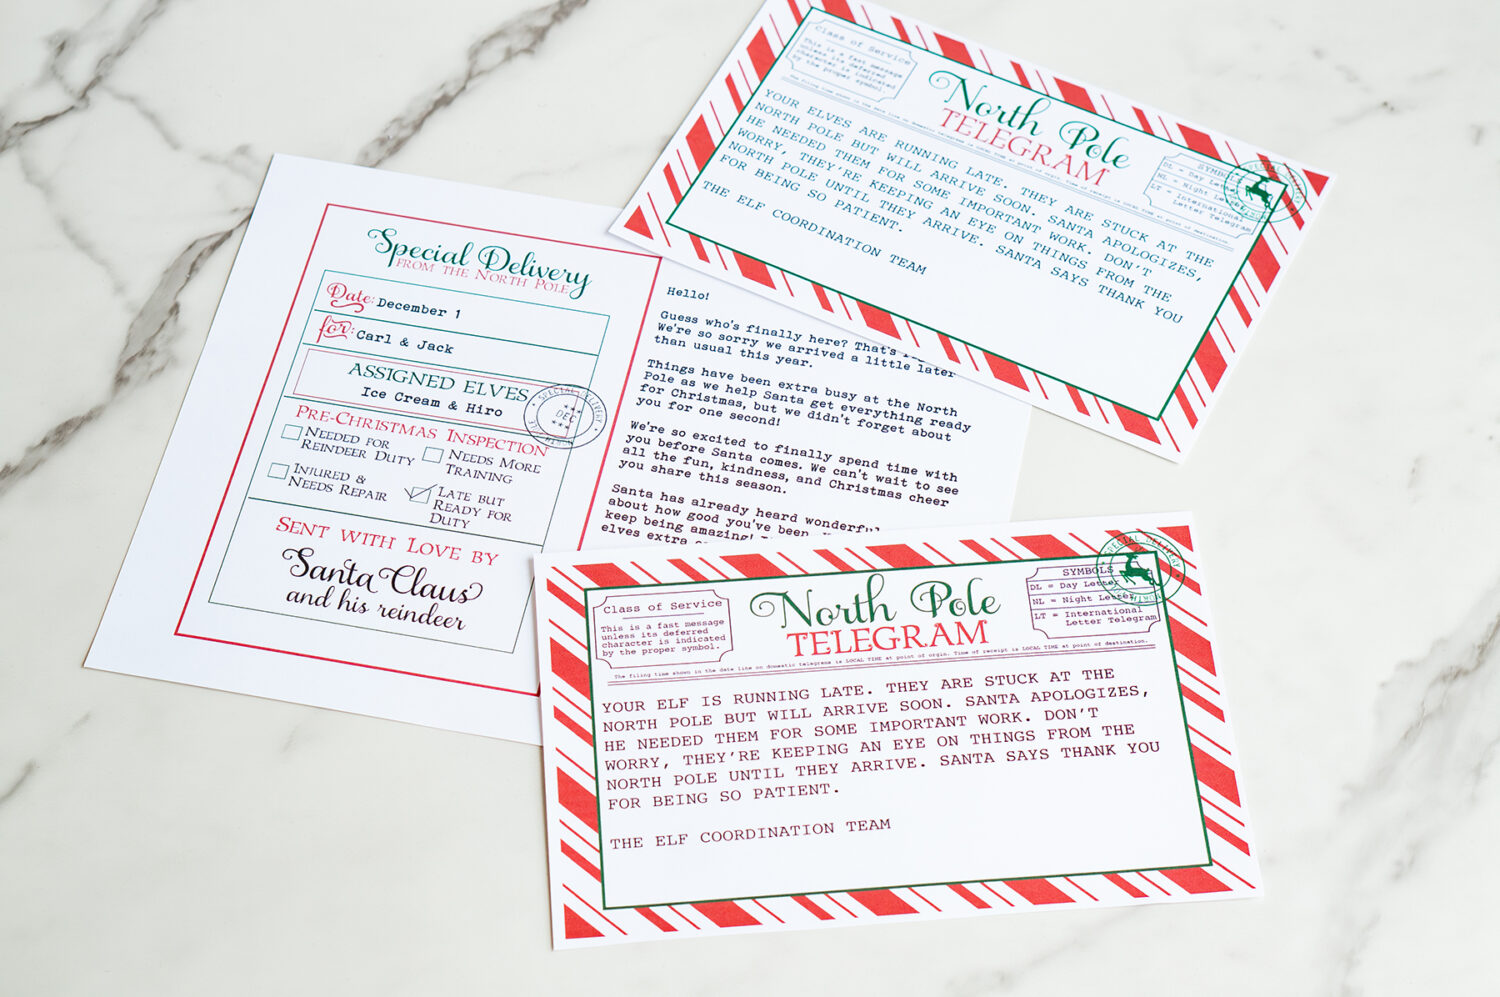 Special Delivery
FROM THE NORTH POLE
Date: December 1
for: Carl & Jack
ASSIGNED ELVES
Ice Cream & Hiro
PRE-CHRISTMAS INSPECTION
NEEDED FOR
REINDEER DUTY
NEEDS MORE
TRAINING
INJURED &
NEEDS REPAIR
LATE BUT
READY FOR
DUTY
SENT WITH LOVE BY
Santa Claus
and his reindeer
SPECIAL DELIVERY
DEC
NORTH
Hello!
Guess who's finally here? That's
We're so sorry we arrived a little later
than usual this year.
Things have been extra busy at the North
Pole as we help Santa get everything ready
for Christmas, but we didn't forget about
you for one second!
We're so excited to finally spend time with
you before Santa comes. We can't wait to see
all the fun, kindness, and Christmas cheer
you share this season.
Santa has already heard wonderful
about how good you've been.
keep being amazing!
elves extra
Class of Service
This is a fast message
unless its deferred
character is indicated
by the proper symbol.
North Pole
TELEGRAM
SYMBOLS
DL = Day Letter
NL = Night Letter
LT = International
Letter Telegram
The filing time shown in the date line on domestic telegrams is LOCAL TIME at point of orgin. Time of receipt is LOCAL TIME at point of destination.
YOUR ELVES ARE RUNNING LATE. THEY ARE STUCK AT THE
NORTH POLE BUT WILL ARRIVE SOON. SANTA APOLOGIZES,
HE NEEDED THEM FOR SOME IMPORTANT WORK. DON'T
WORRY, THEY'RE KEEPING AN EYE ON THINGS FROM THE
NORTH POLE UNTIL THEY ARRIVE. SANTA SAYS THANK YOU
FOR BEING SO PATIENT.
THE ELF COORDINATION TEAM
Class of Service
This is a fast message
unless its deferred
character is indicated
by the proper symbol.
North Pole
TELEGRAM
SYMBOLS
DL = Day Letter
NL = Night Letter
LT = International
Letter Telegram
SPECIAL DELIVERY
NORTH
The filing time shown in the date line on domestic telegrams is LOCAL TIME at point of orgin. Time of receipt is LOCAL TIME at point of destination.
YOUR ELF IS RUNNING LATE. THEY ARE STUCK AT THE
NORTH POLE BUT WILL ARRIVE SOON. SANTA APOLOGIZES,
HE NEEDED THEM FOR SOME IMPORTANT WORK. DON'T
WORRY, THEY'RE KEEPING AN EYE ON THINGS FROM THE
NORTH POLE UNTIL THEY ARRIVE. SANTA SAYS THANK YOU
FOR BEING SO PATIENT.
THE ELF COORDINATION TEAM